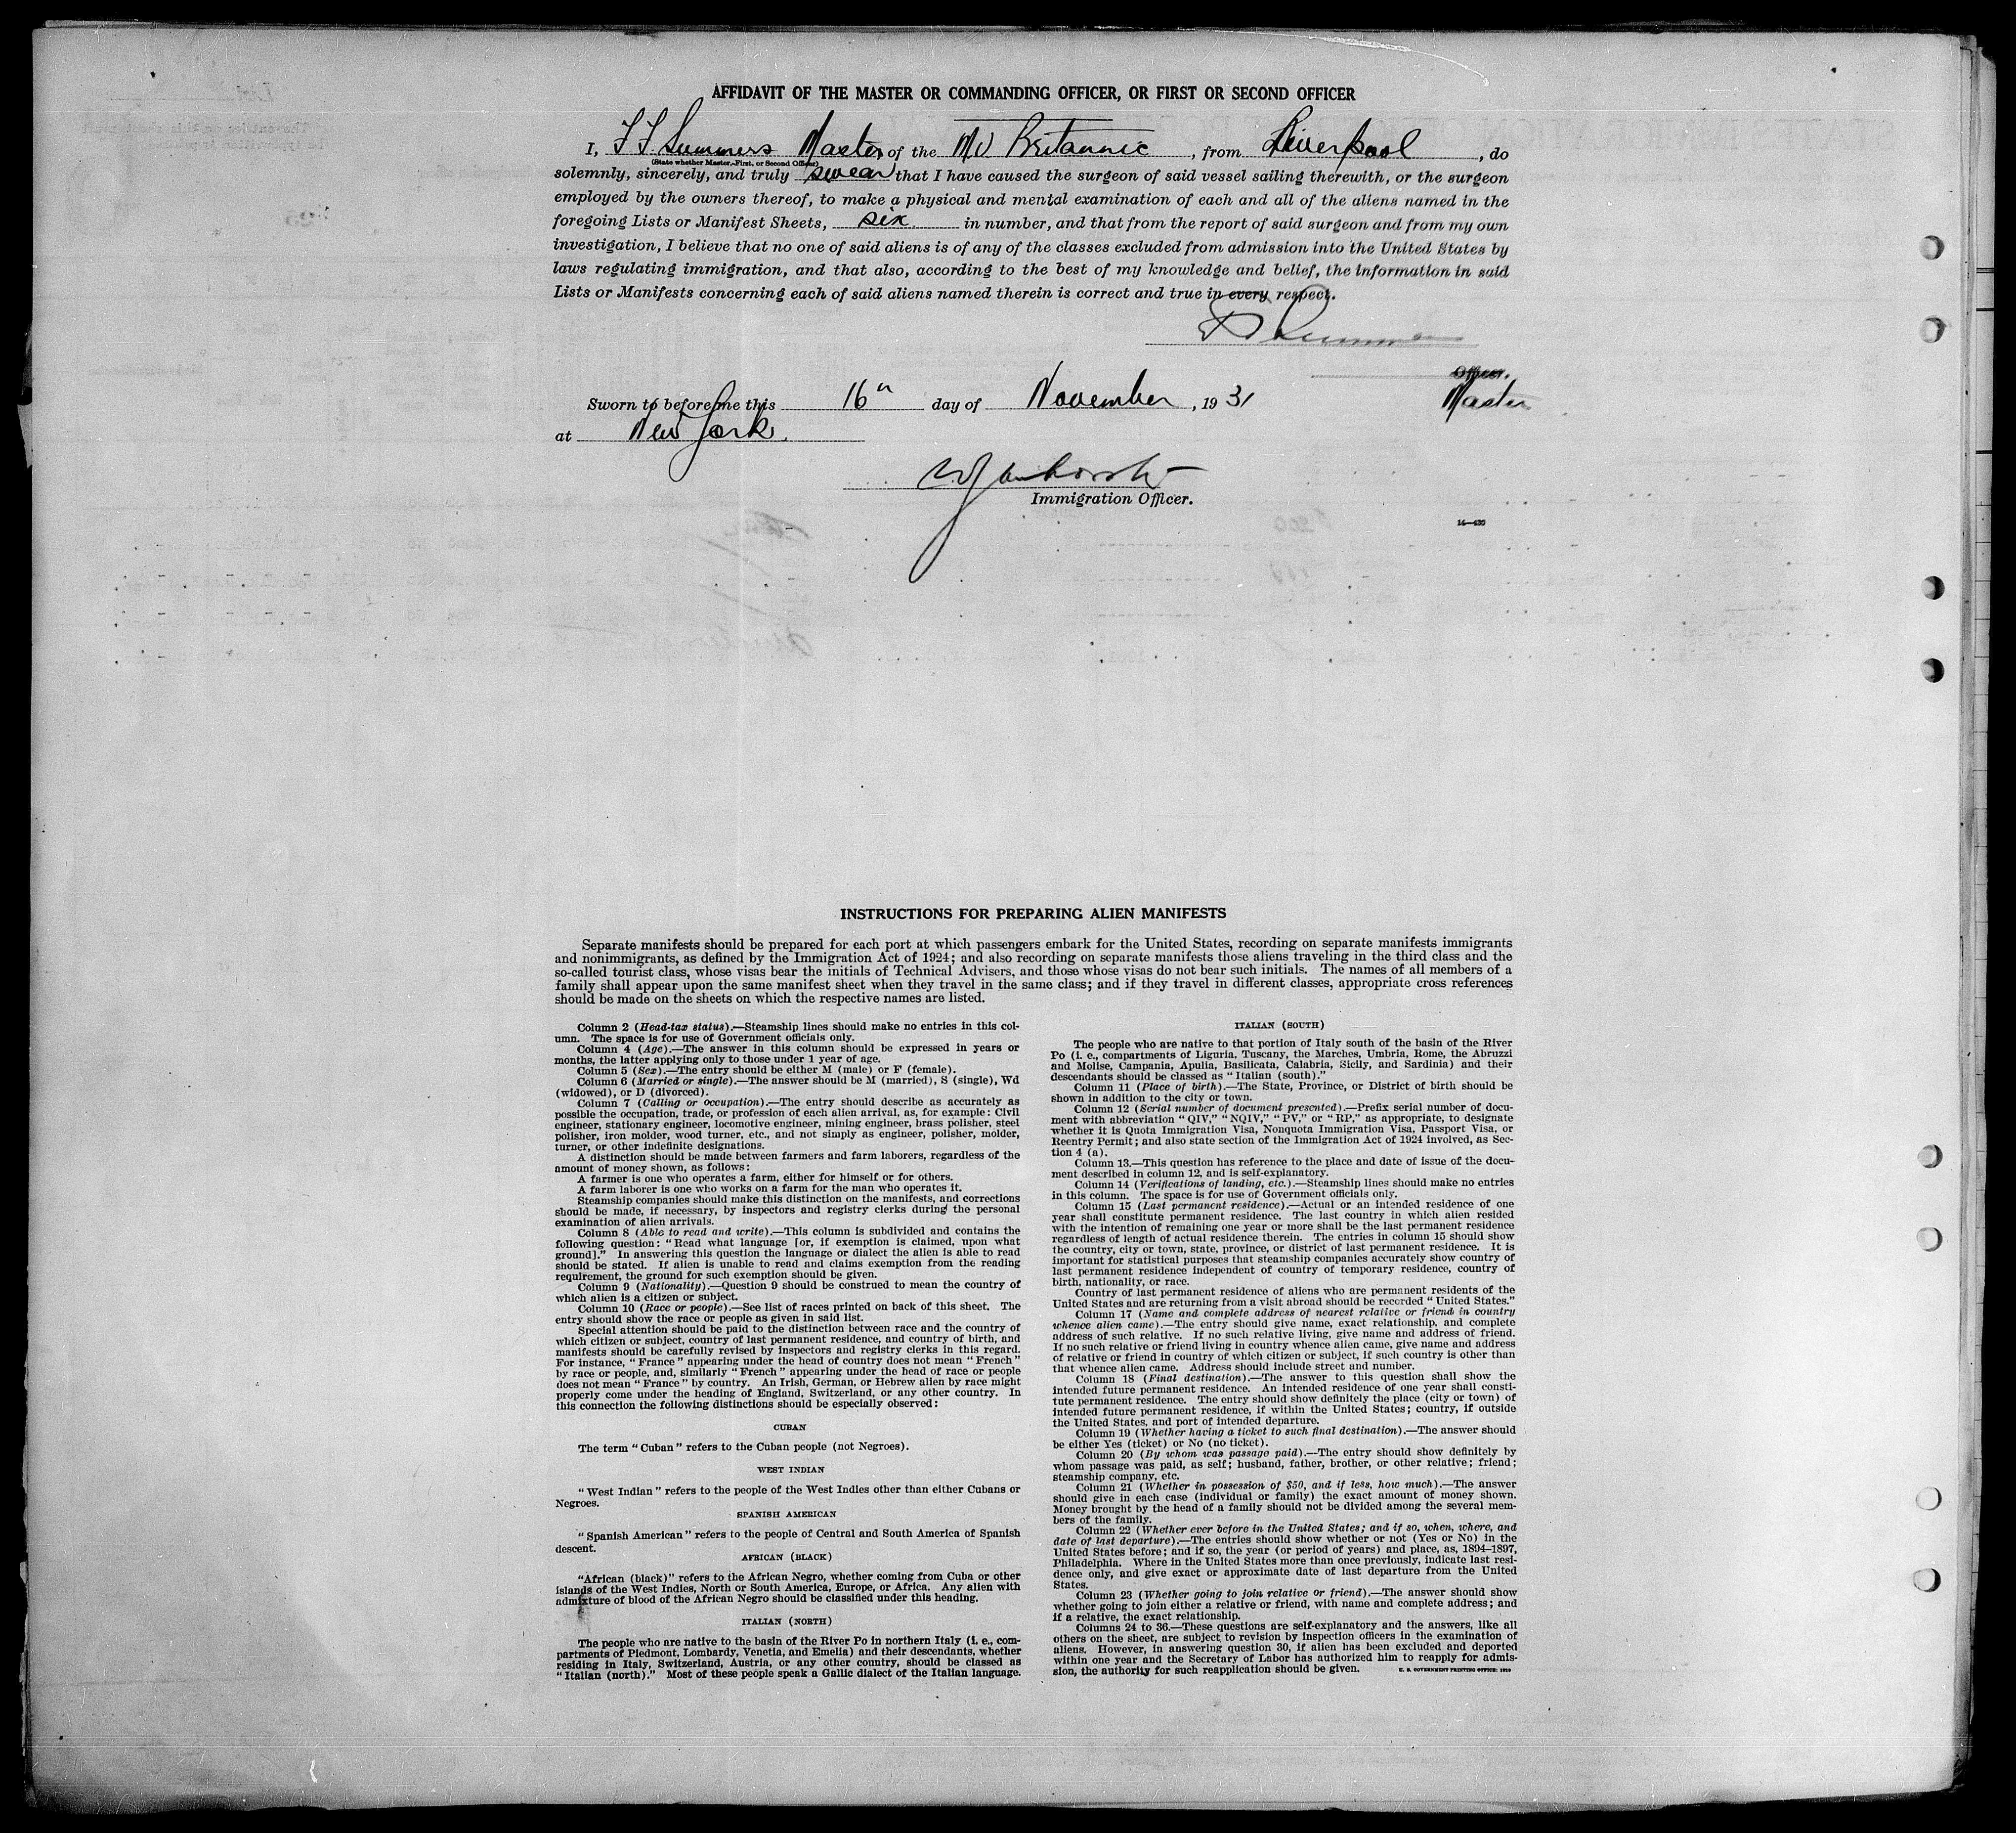 AFFIDAVIT OF THE MASTER OR COMMANDING OFFICER, OR FIRST OR SECOND OFFICER
I, Summers Master of the MV Britannic, from Liverpool, do
(State whether Master, First, or Second Officer)
solemnly, sincerely, and truly swear that I have caused the surgeon of said vessel sailing therewith, or the surgeon
employed by the owners thereof, to make a physical and mental examination of each and all of the aliens named in the
foregoing Lists or Manifest Sheets, six in number, and that from the report of said surgeon and from my own
investigation, I believe that no one of said aliens is of any of the classes excluded from admission into the United States by
laws regulating immigration, and that also, according to the best of my knowledge and belief, the information in said
Lists or Manifests concerning each of said aliens named therein is correct and true in every respect.
Officer.
Master
Sworn to before me this 16th day of November, 1931
at New York.
Immigration Officer.
14—430
INSTRUCTIONS FOR PREPARING ALIEN MANIFESTS
Separate manifests should be prepared for each port at which passengers embark for the United States, recording on separate manifests immigrants
and nonimmigrants, as defined by the Immigration Act of 1924; and also recording on separate manifests those aliens traveling in the third class and the
so-called tourist class, whose visas bear the initials of Technical Advisers, and those whose visas do not bear such initials. The names of all members of a
family shall appear upon the same manifest sheet when they travel in the same class; and if they travel in different classes, appropriate cross references
should be made on the sheets on which the respective names are listed.
Column 2 (Head-tax status).—Steamship lines should make no entries in this col-
umn. The space is for use of Government officials only.
Column 4 (Age).—The answer in this column should be expressed in years or
months, the latter applying only to those under 1 year of age.
Column 5 (Sex).—The entry should be either M (male) or F (female).
Column 6 (Married or single).—The answer should be M (married), S (single), Wd
(widowed), or D (divorced).
Column 7 (Calling or occupation).—The entry should describe as accurately as
possible the occupation, trade, or profession of each alien arrival, as, for example: Civil
engineer, stationary engineer, locomotive engineer, mining engineer, brass polisher, steel
polisher, iron molder, wood turner, etc., and not simply as engineer, polisher, molder,
turner, or other indefinite designations.
A distinction should be made between farmers and farm laborers, regardless of the
amount of money shown, as follows:
A farmer is one who operates a farm, either for himself or for others.
A farm laborer is one who works on a farm for the man who operates it.
Steamship companies should make this distinction on the manifests, and corrections
should be made, if necessary, by inspectors and registry clerks during the personal
examination of alien arrivals.
Column 8 (Able to read and write).—This column is subdivided and contains the
following question: "Read what language [or, if exemption is claimed, upon what
ground]." In answering this question the language or dialect the alien is able to read
should be stated. If alien is unable to read and claims exemption from the reading
requirement, the ground for such exemption should be given.
Column 9 (Nationality).—Question 9 should be construed to mean the country of
which alien is a citizen or subject.
Column 10 (Race or people).—See list of races printed on back of this sheet. The
entry should show the race or people as given in said list.
Special attention should be paid to the distinction between race and the country of
which citizen or subject, country of last permanent residence, and country of birth, and
manifests should be carefully revised by inspectors and registry clerks in this regard.
For instance, "France" appearing under the head of country does not mean "French"
by race or people, and, similarly "French" appearing under the head of race or people
does not mean "France" by country. An Irish, German, or Hebrew alien by race might
properly come under the heading of England, Switzerland, or any other country. In
this connection the following distinctions should be especially observed:
CUBAN
The term "Cuban" refers to the Cuban people (not Negroes).
WEST INDIAN
"West Indian" refers to the people of the West Indies other than either Cubans or
Negroes.
SPANISH AMERICAN
"Spanish American" refers to the people of Central and South America of Spanish
descent.
AFRICAN (BLACK)
"African (black)" refers to the African Negro, whether coming from Cuba or other
islands of the West Indies, North or South America, Europe, or Africa. Any alien with
admixture of blood of the African Negro should be classified under this heading.
ITALIAN (NORTH)
The people who are native to the basin of the River Po in northern Italy (i. e., com-
partments of Piedmont, Lombardy, Venetia, and Emelia) and their descendants, whether
residing in Italy, Switzerland, Austria, or any other country, should be classed as
"Italian (north)." Most of these people speak a Gallic dialect of the Italian language.
ITALIAN (SOUTH)
The people who are native to that portion of Italy south of the basin of the River
Po (i. e., compartments of Liguria, Tuscany, the Marches, Umbria, Rome, the Abruzzi
and Molise, Campania, Apulia, Basilicata, Calabria, Sicily, and Sardinia) and their
descendants should be classed as "Italian (south)."
Column 11 (Place of birth).—The State, Province, or District of birth should be
shown in addition to the city or town.
Column 12 (Serial number of document presented).—Prefix serial number of docu-
ment with abbreviation "QIV," "NQIV," "PV," or "RP," as appropriate, to designate
whether it is Quota Immigration Visa, Nonquota Immigration Visa, Passport Visa, or
Reentry Permit; and also state section of the Immigration Act of 1924 involved, as Sec-
tion 4 (a).
Column 13.—This question has reference to the place and date of issue of the docu-
ment described in column 12, and is self-explanatory.
Column 14 (Verifications of landing, etc.).—Steamship lines should make no entries
in this column. The space is for use of Government officials only.
Column 15 (Last permanent residence).—Actual or an intended residence of one
year shall constitute permanent residence. The last country in which alien resided
with the intention of remaining one year or more shall be the last permanent residence
regardless of length of actual residence therein. The entries in column 15 should show
the country, city or town, state, province, or district of last permanent residence. It is
important for statistical purposes that steamship companies accurately show country of
last permanent residence independent of country of temporary residence, country of
birth, nationality, or race.
Country of last permanent residence of aliens who are permanent residents of the
United States and are returning from a visit abroad should be recorded "United States."
Column 17 (Name and complete address of nearest relative or friend in country
whence alien came).—The entry should give name, exact relationship, and complete
address of such relative. If no such relative living, give name and address of friend.
If no such relative or friend living in country whence alien came, give name and address
of relative or friend in country of which citizen or subject, if such country is other than
that whence alien came. Address should include street and number.
Column 18 (Final destination).—The answer to this question shall show the
intended future permanent residence. An intended residence of one year shall consti-
tute permanent residence. The entry should show definitely the place (city or town) of
intended future permanent residence, if within the United States; country, if outside
the United States, and port of intended departure.
Column 19 (Whether having a ticket to such final destination).—The answer should
be either Yes (ticket) or No (no ticket).
Column 20 (By whom was passage paid).—The entry should show definitely by
whom passage was paid, as self; husband, father, brother, or other relative; friend;
steamship company, etc.
Column 21 (Whether in possession of $50, and if less, how much).—The answer
should give in each case (individual or family) the exact amount of money shown.
Money brought by the head of a family should not be divided among the several mem-
bers of the family.
Column 22 (Whether ever before in the United States; and if so, when, where, and
date of last departure).—The entries should show whether or not (Yes or No) in the
United States before; and if so, the year (or period of years) and place, as, 1894–1897,
Philadelphia. Where in the United States more than once previously, indicate last resi-
dence only, and give exact or approximate date of last departure from the United
States.
Column 23 (Whether going to join relative or friend).—The answer should show
whether going to join either a relative or friend, with name and complete address; and
if a relative, the exact relationship.
Columns 24 to 36.—These questions are self-explanatory and the answers, like all
others on the sheet, are subject to revision by inspection officers in the examination of
aliens. However, in answering question 30, if alien has been excluded and deported
within one year and the Secretary of Labor has authorized him to reapply for admis-
sion, the authority for such reapplication should be given.
U. S. GOVERNMENT PRINTING OFFICE: